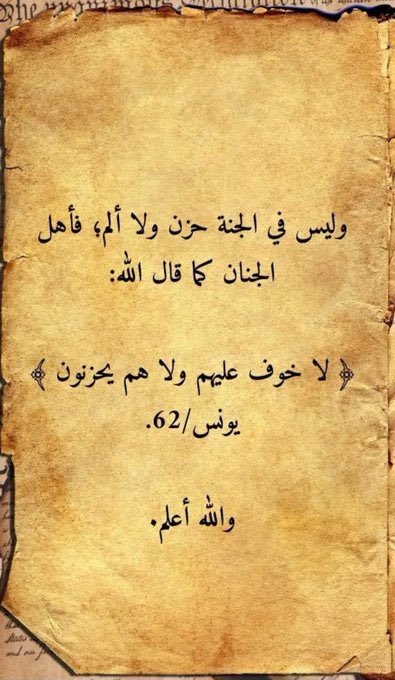 وليس في الجنة حزن ولا ألم؛ فأهل
الجنان كما قال الله:
﴿ لا خوف عليهم ولا هم يحزنون ﴾
يونس/62.
والله أعلم.